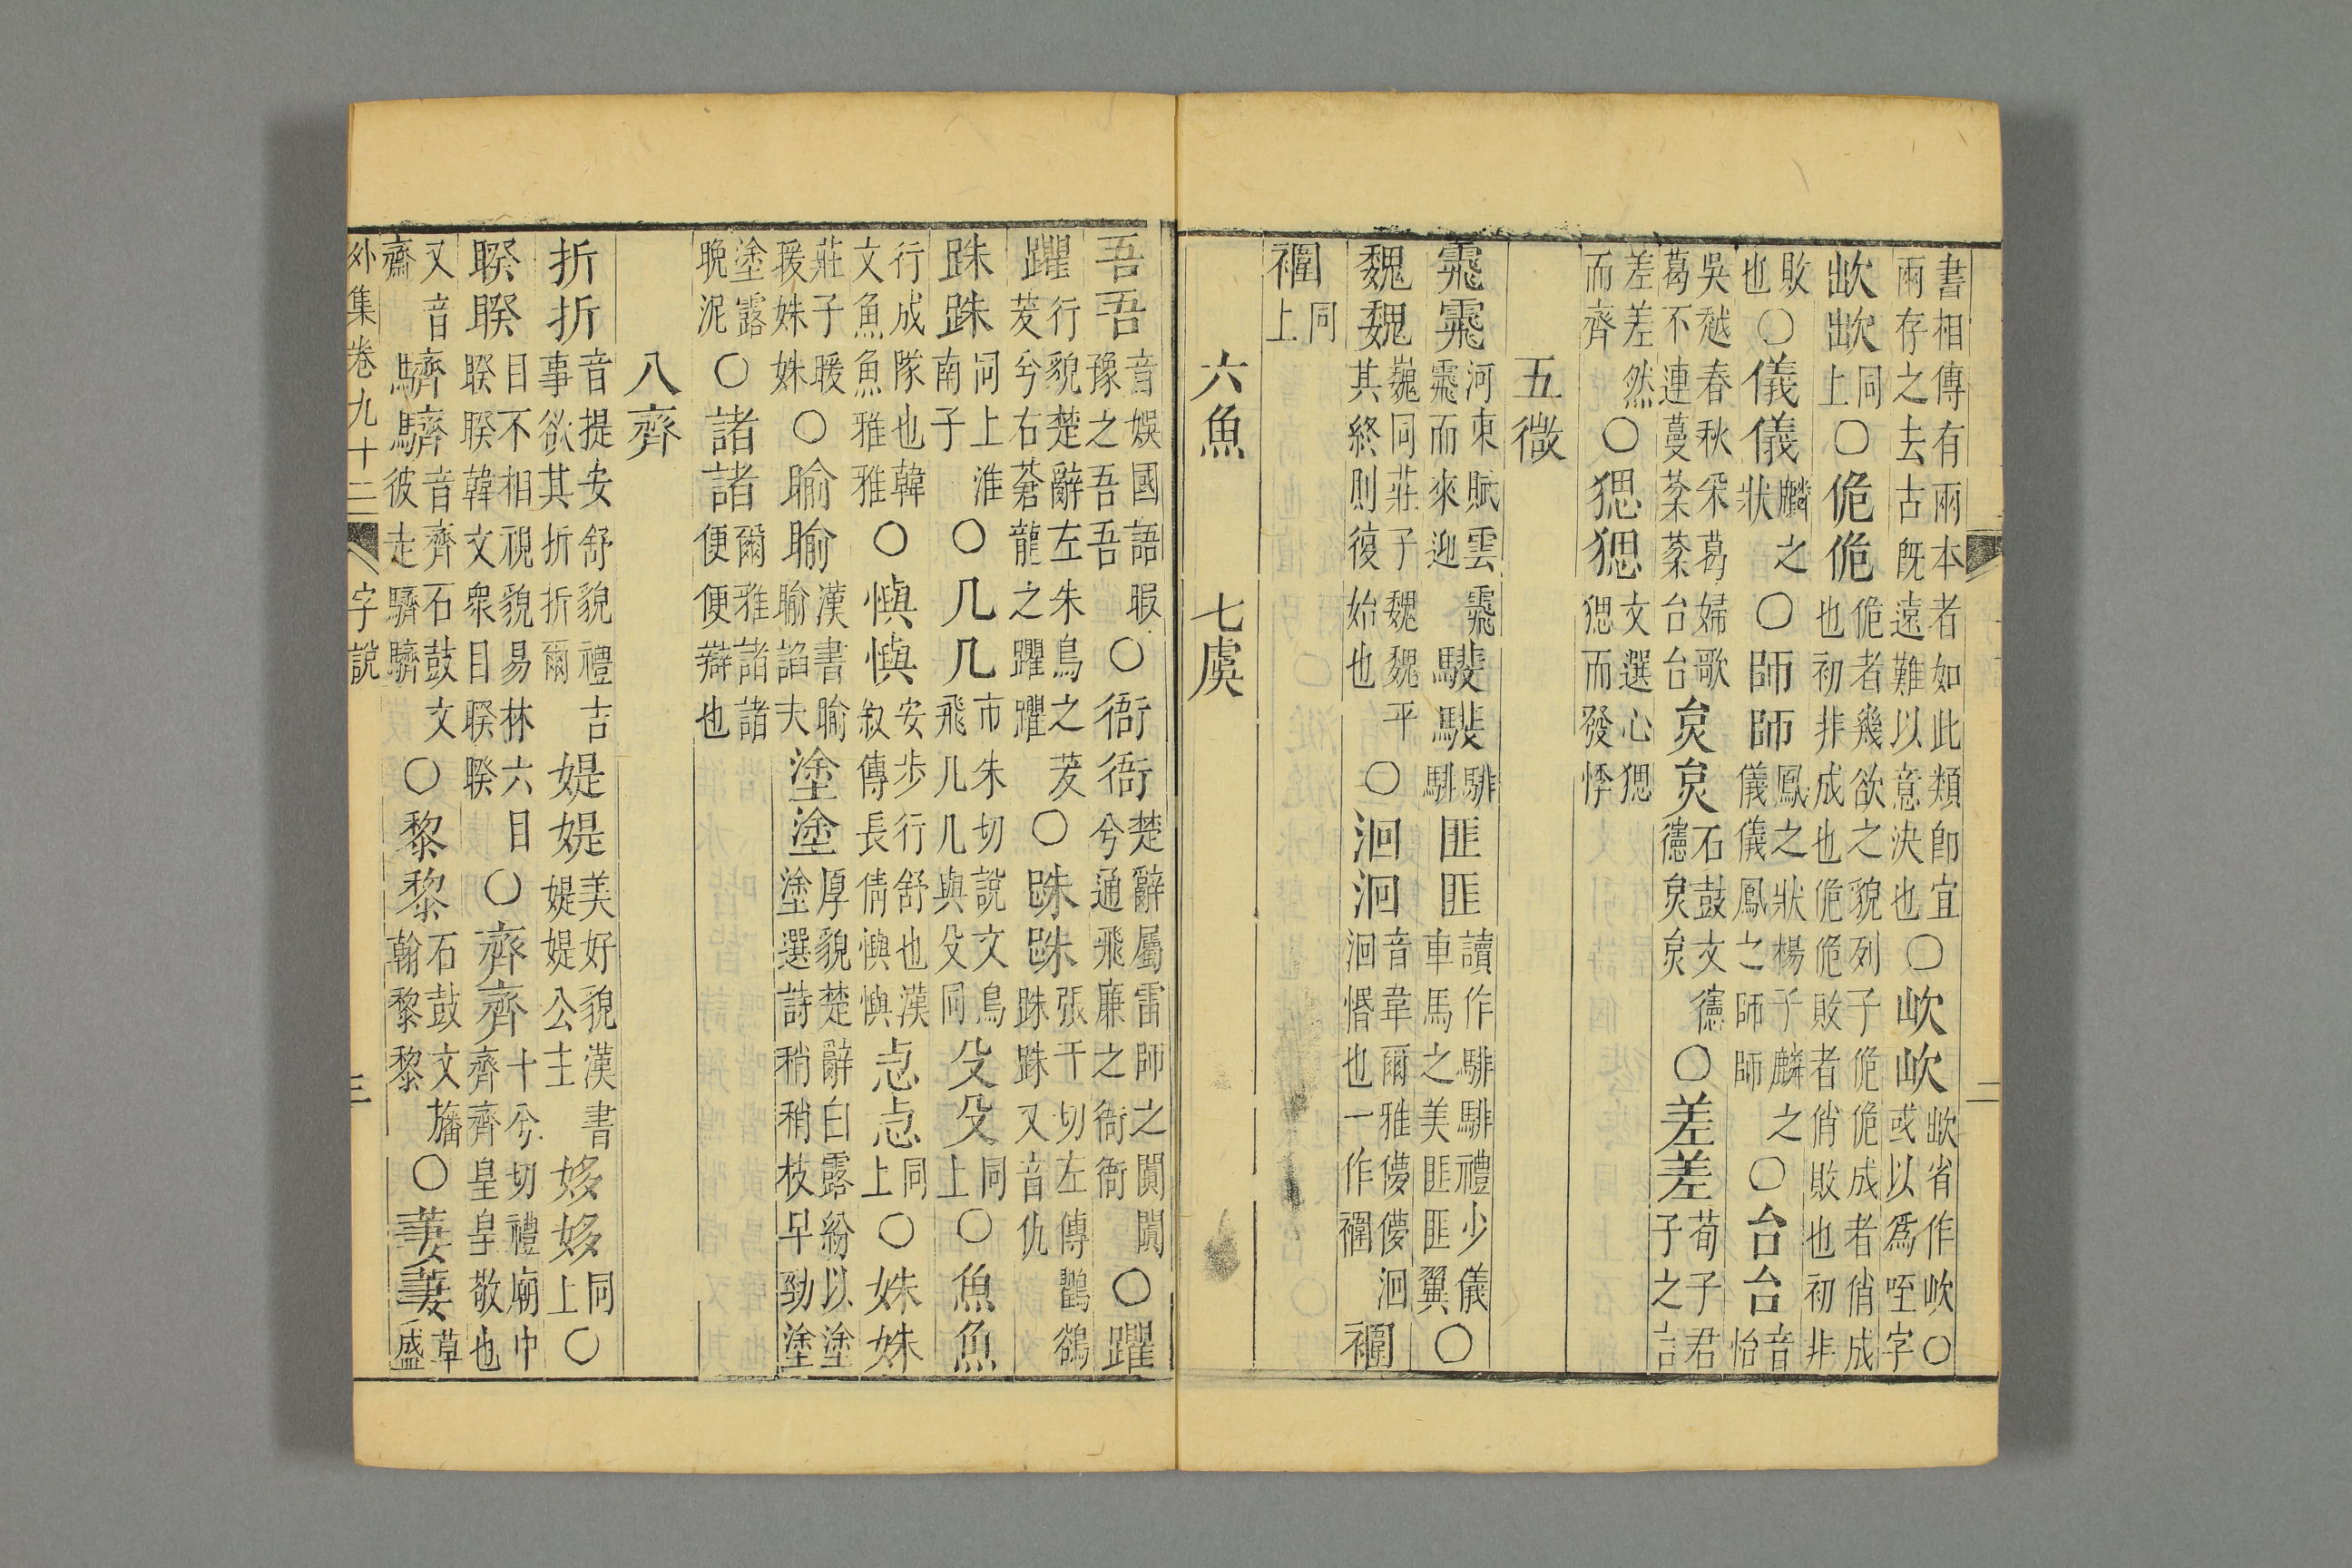 書相傳有兩本者如此類卽宜兩存之去古旣遠難以意決也〇㰞㰞欪省作㰞〇或以爲咥字
欪欪同上〇佹佹佹者幾欲之貌列子佹佹成者俏成也初非成也佹佹敗者俏敗也初非
敗也〇儀儀麟之狀〇師師鳳之狀楊子麟之儀儀鳳之師師〇台台音怡
吳越春秋采葛婦歌葛不連蔓棻棻台台㚖㚖石鼓文憲憲㚖㚖〇差差荀子君子之言
差差然而齊〇𤟧𤟧文選心𤟧𤟧而發悸
五微
河東賦雲而來迎騑騑匪匪讀作騑騑禮少儀車馬之美匪匪翼〇
魏魏巍同莊子魏魏平其終則復始也〇洄洄音韋爾雅儚儚洄洄惛也一作
同上
六魚　七虞
二
吾吾音娛國語暇豫之吾吾〇衙衙楚辭屬雷師之闐闐兮通飛廉之衙衙〇躣
躣行貌楚辭左朱鳥之茇茇兮右蒼龍之躣躣〇跦跦張干切左傳鸜鵒跦跦又音仇
跦跦同上淮南子〇几几市朱切說文鳥飛几几與殳同殳殳同上〇魚魚
行成隊也韓文魚魚雅雅〇懙懙安步行舒也漢叙傳長倩懙懙同上〇姝姝
莊子暖暖姝姝〇睮睮漢書睮睮諂夫塗塗厚貌楚辭白露紛以塗塗選詩稍稍枝早勁塗
塗露晚泥〇諸諸爾雅諸諸便便辯也
八齊
折折音提安舒貌禮吉事欲其折折爾媞媞美好貌漢書媞媞公主姼姼同上〇
睽睽目不相視貌易林六目睽睽韓文衆目睽睽〇齊齊十兮切禮廟中齊齊皇皇敬也
又音齋䮺䮺音齊石鼓文彼走䮺䮺〇黎黎石鼓文旛翰黎黎〇萋萋草盛
外集卷九十二　字說　三